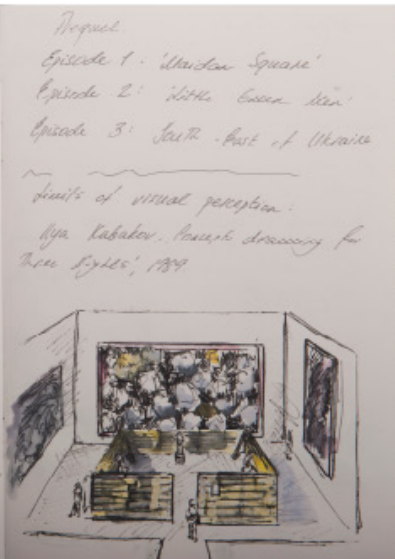 Prequel.
Episode 1 - 'Maidan Square'
Episode 2: 'Little Green Men'
Episode 3: South-East of Ukraine
Limits of visual perception:
Ilya Kabakov. Concept drawing for
'Three Nights', 1989